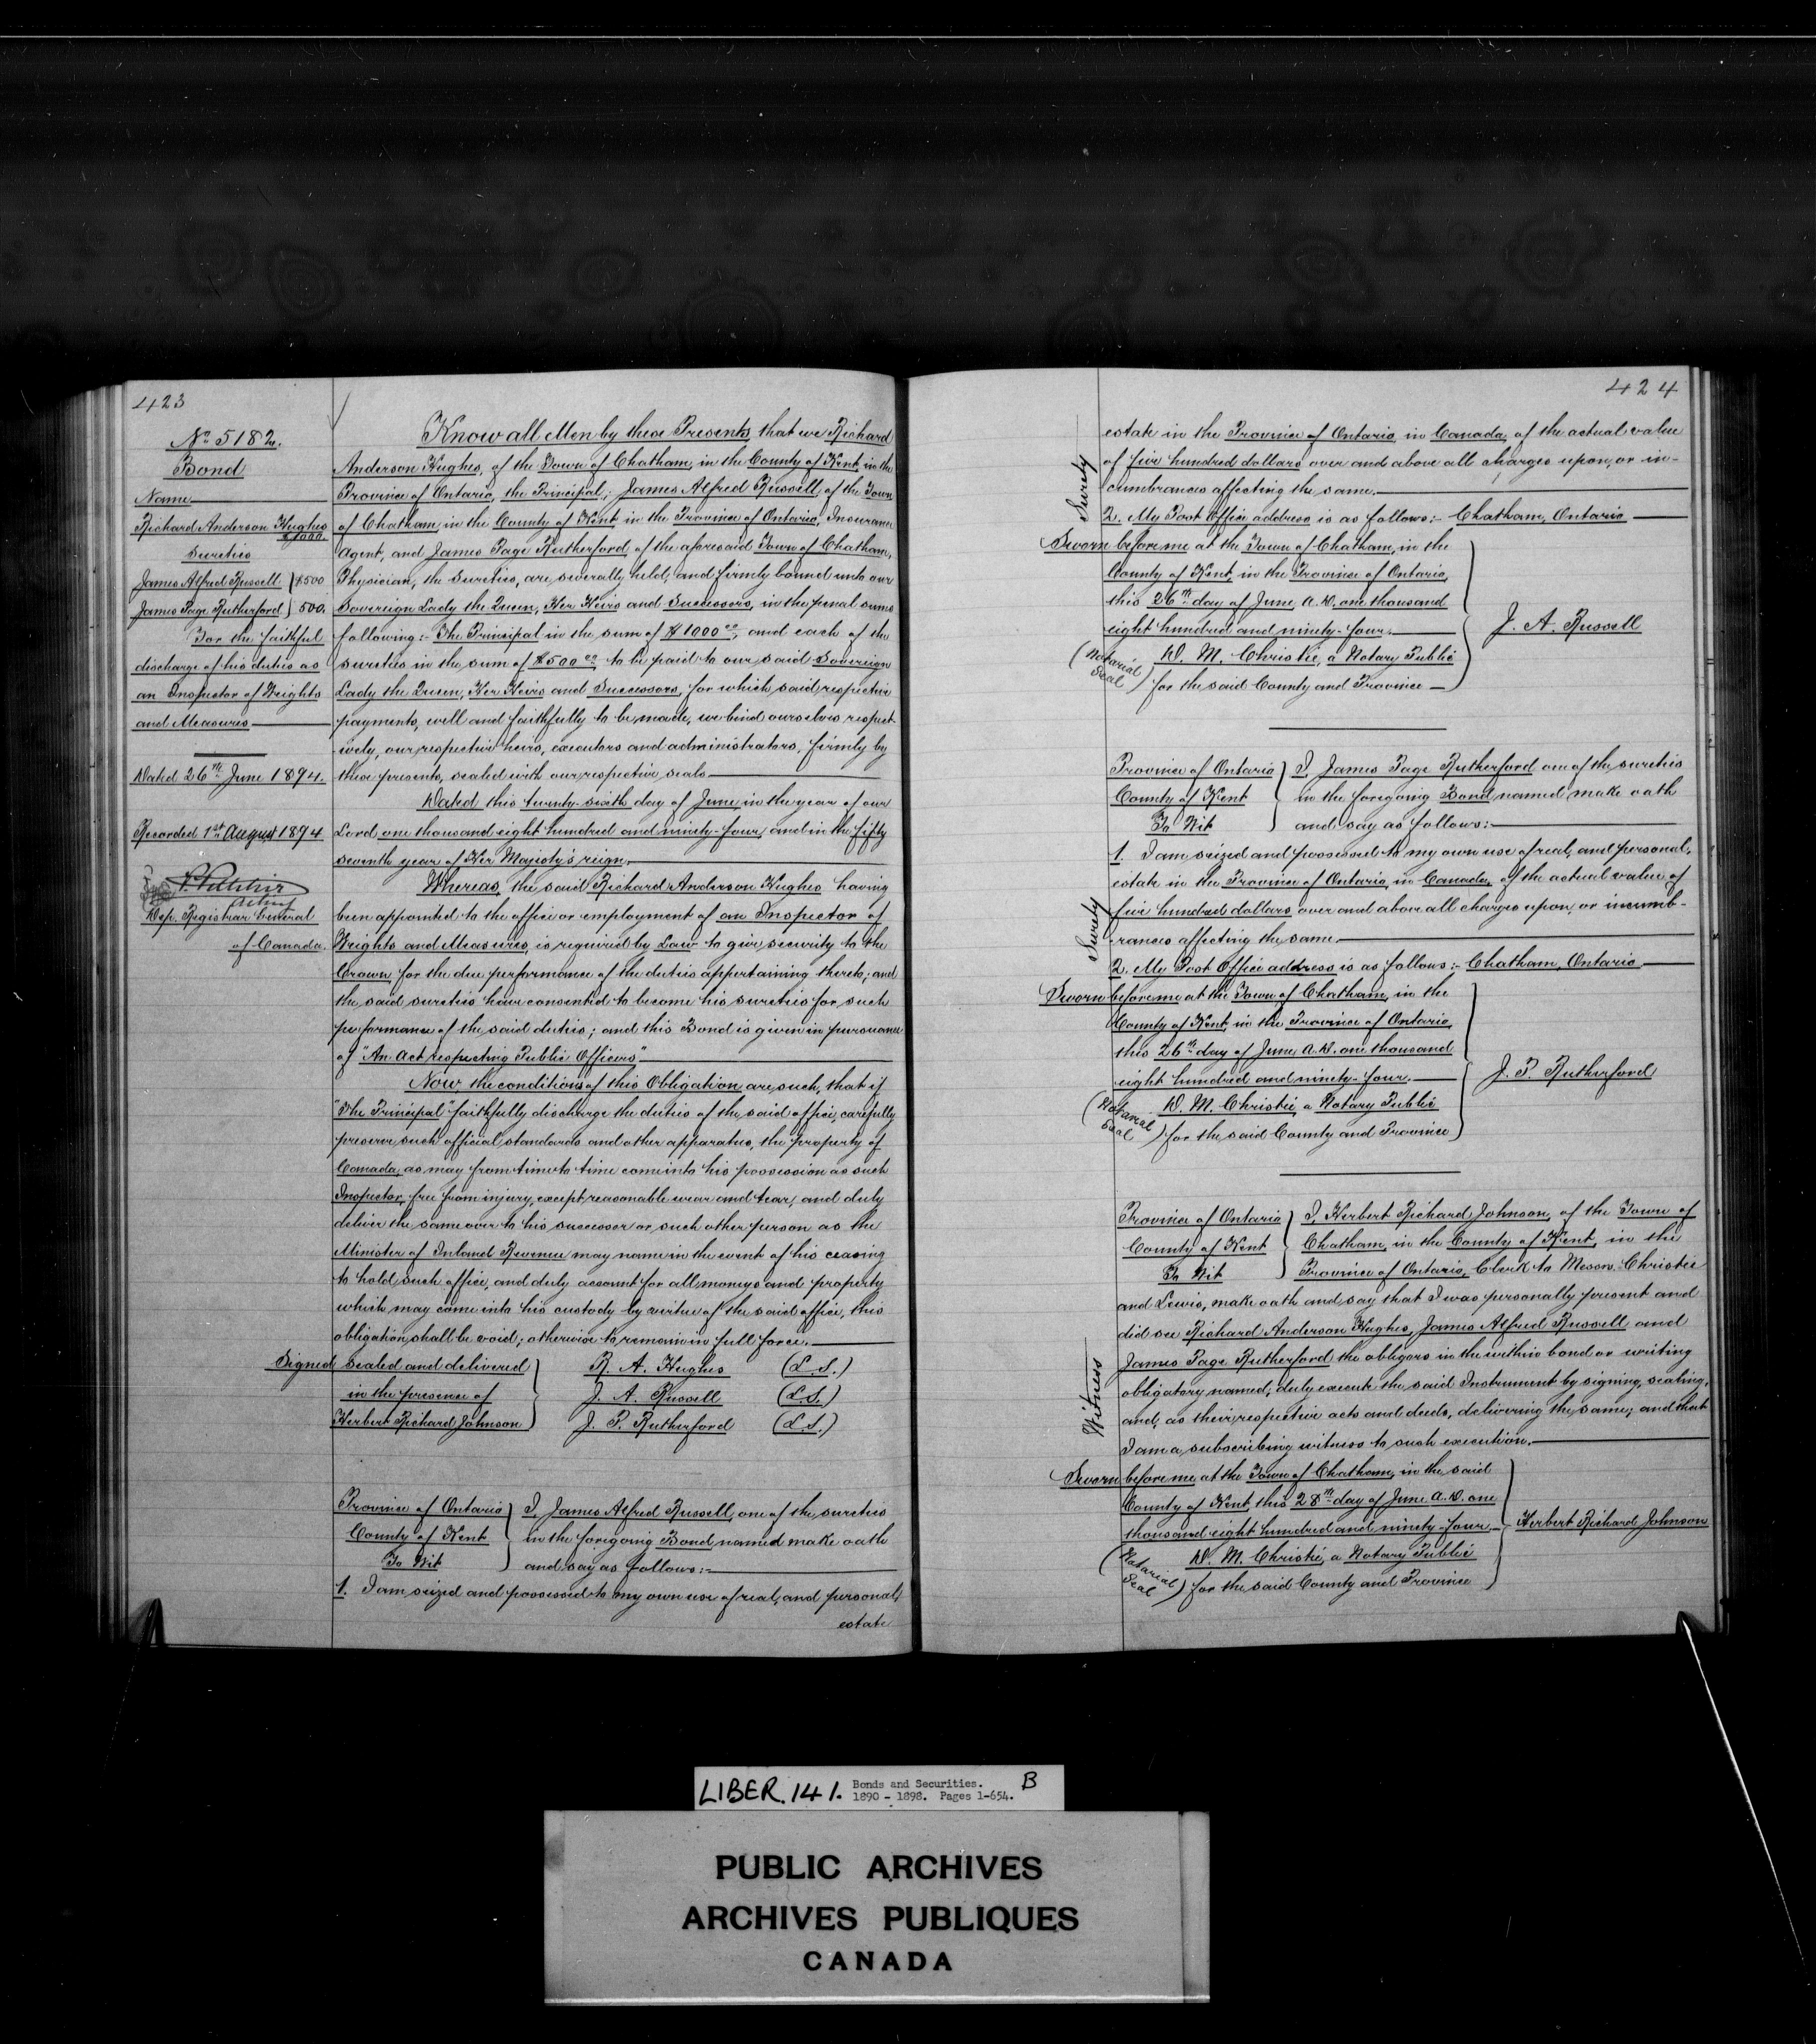 423
No 5182.
Bond
Name
Richard Anderson Hughes
$1000.
Sureties
James Alfred Russell } $500
James Page Rutherford } 500.
For the faithful
discharge of his duties as
an Inspector of Weights
and Measures
Dated 26th June 1894.
Recorded 1st August 1894
acting
Dep. Registrar General
of Canada.
Know all Men by these Presents, that we Richard
Anderson Hughes, of the Town of Chatham, in the County of Kent, in the
Province of Ontario, the Principal; James Alfred Russell, of the Town
of Chatham, in the County of Kent in the Province of Ontario, Insurance
Agent, and James Page Rutherford of the aforesaid Town of Chatham,
Physician, the Sureties, are severally held, and firmly bound unto our
Sovereign Lady the Queen, Her Heirs and Successors, in the penal sums
following:- The Principal in the sum of $1000 00, and each of the
sureties in the sum of $500 00 to be paid to our said Sovereign
Lady the Queen, Her Heirs and Successors, for which said respective
payments, well and faithfully to be made, we bind ourselves respect-
ively, our respective heirs, executors and administrators, firmly by
these presents, sealed with our respective seals
Dated this twenty-sixth day of June in the year of our
Lord one thousand eight hundred and ninety-four, and in the fifty
seventh year of Her Majesty's reign.
Whereas, the said Richard Anderson Hughes having
been appointed to the office or employment of an Inspector of
Weights and Measures, is required by Law to give security to the
Crown for the due performance of the duties appertaining thereto; and
the said sureties have consented to become his sureties for such
performance of the said duties; and this Bond is given in pursuance
of "An Act respecting Public Officers"
Now the conditions of this Obligation are such, that if
"The Principal" faithfully discharge the duties of the said office, carefully
preserve such official standards and other apparatus, the property of
Canada, as may from time to time come into his possession as such
Inspector, free from injury, except reasonable wear and tear, and duly
deliver the same over to his successor or such other person as the
Minister of Inland Revenue may name in the event of his ceasing
to hold such office, and duly account for all moneys and property
which may come into his custody by virtue of the said office, this
obligation shall be void; otherwise to remain in full force.
Signed sealed and delivered } R. A. Hughes (L.S.)
in the presence of J. A. Russell (L.S.)
Herbert Richard Johnson } J. P. Rutherford (L.S.)
Province of Ontario } I, James Alfred Russell, one of the sureties
County of Kent in the foregoing Bond, named make oath
To Wit } and say as follows:-
1. I am seized and possessed to my own use of real, and personal,
estate
424
estate in the Province of Ontario, in Canada, of the actual value
of five hundred dollars over and above all charges upon, or in-
cumbrances affecting the same.
Surety
2. My Post Office address is as follows:- Chatham, Ontario
Sworn before me at the Town of Chatham, in the
County of Kent, in the Province of Ontario,
this 26th day of June, A.D. one thousand
eight hundred and ninety-four. J. A. Russell
(Notarial Seal) D. M. Christie, a Notary Public
for the said County and Province
Province of Ontario } I, James Page Rutherford one of the sureties
County of Kent in the foregoing Bond named make oath
To Wit } and say as follows:-
1. I am seized and possessed to my own use of real, and personal,
estate in the Province of Ontario, in Canada, of the actual value of
five hundred dollars over and above all charges upon, or incumb-
rances affecting the same.
Surety
2. My Post Office address is as follows:- Chatham, Ontario
Sworn before me at the Town of Chatham, in the
County of Kent, in the Province of Ontario,
this 26th day of June A.D. one thousand
eight hundred and ninety-four. J. P. Rutherford
(Notarial Seal) D. M. Christie, a Notary Public
for the said County and Province
Province of Ontario } I, Herbert Richard Johnson, of the Town of
County of Kent Chatham, in the County of Kent, in the
To Wit } Province of Ontario, Clerk to Messrs. Christie
and Lewis, make oath and say that I was personally present and
did see Richard Anderson Hughes, James Alfred Russell and
James Page Rutherford the obligors in the within bond or writing
obligatory named, duly execute the said Instrument by signing, sealing,
and, as their respective acts and deeds, delivering the same; and that
I am a subscribing witness to such execution.
Witness
Sworn before me at the Town of Chatham, in the said
County of Kent, this 28th day of June A.D. one
thousand eight hundred and ninety-four. Herbert Richard Johnson
(Notarial Seal) D. M. Christie, a Notary Public
for the said County and Province
LIBER. 141. Bonds and Securities. B
1890 - 1898. Pages 1-654.
PUBLIC ARCHIVES
ARCHIVES PUBLIQUES
CANADA